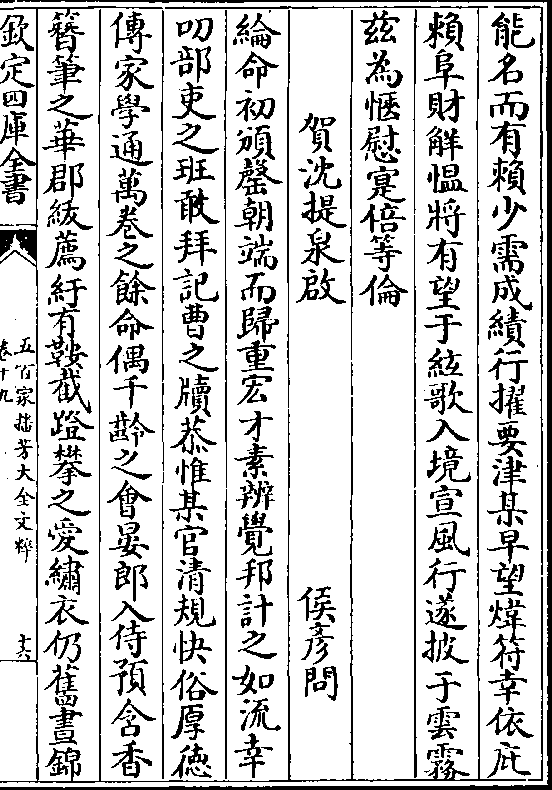 能名而有賴少需成績行擢要津某早望煒符幸依庇
賴阜財解愠將有望于絃歌入境宣風行遂披于雲霧
兹為愜慰寔倍等倫
賀沈提泉啟　侯彦問
綸命初頒罄朝端而歸重宏才素辨覺邦計之如流幸
叨部吏之班敢拜記曹之牘恭惟某官清規快俗厚徳
傳家學通萬卷之餘命偶千齡之會晏郎入侍預含香
簪筆之華郡紱薦紆有鞍截鐙攀之愛繡衣仍舊晝錦
欽定四庫全書
五百家播芳大全文粹
卷十九
十六